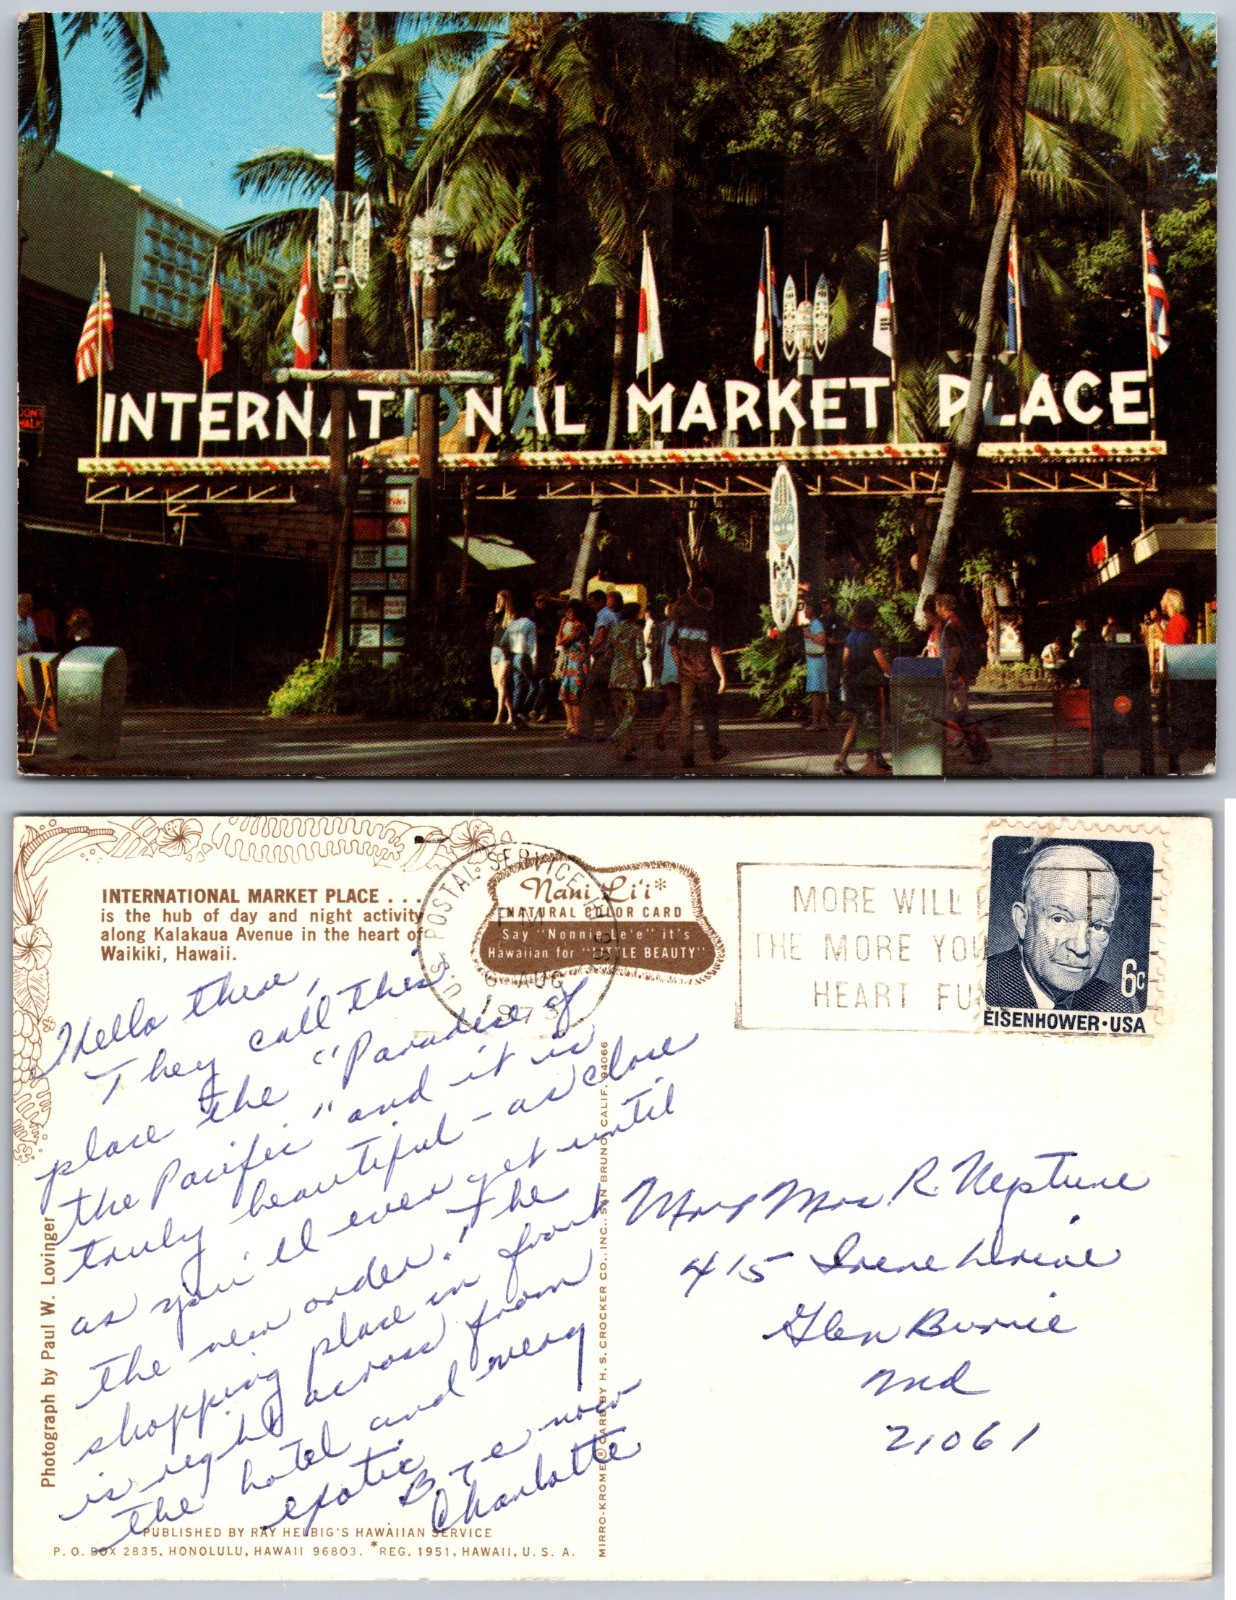 INTERNATIONAL MARKET PLACE
DONT
WALK
INTERNATIONAL MARKET PLACE . . .
is the hub of day and night activity
along Kalakaua Avenue in the heart of
Waikiki, Hawaii.
Nani Li'i*
NATURAL COLOR CARD
Say "Nonnie Le'e" it's
Hawaiian for "LITTLE BEAUTY"
U.S. POSTAL SERVICE
PM
6 AUG
MORE WILL
THE MORE YOU
HEART FU
6c
EISENHOWER·USA
Hello there,
They call this
place the "Paradise of
the Pacific" and it is
truly beautiful - as close
as you'll ever get until
the new order! The
shopping place in front
is right across from
the hotel and very
exotic
Bye now
Charlotte
Mr & Mrs. R. Neptune
415 Irene Drive
Glen Burnie
Md
21061
Photograph by Paul W. Lovinger
MIRRO-KROME® CARD BY H. S. CROCKER CO., INC., SAN BRUNO, CALIF. 94066
PUBLISHED BY RAY HELBIG'S HAWAIIAN SERVICE
P. O. BOX 2835, HONOLULU, HAWAII 96803. *REG. 1951, HAWAII, U. S. A.